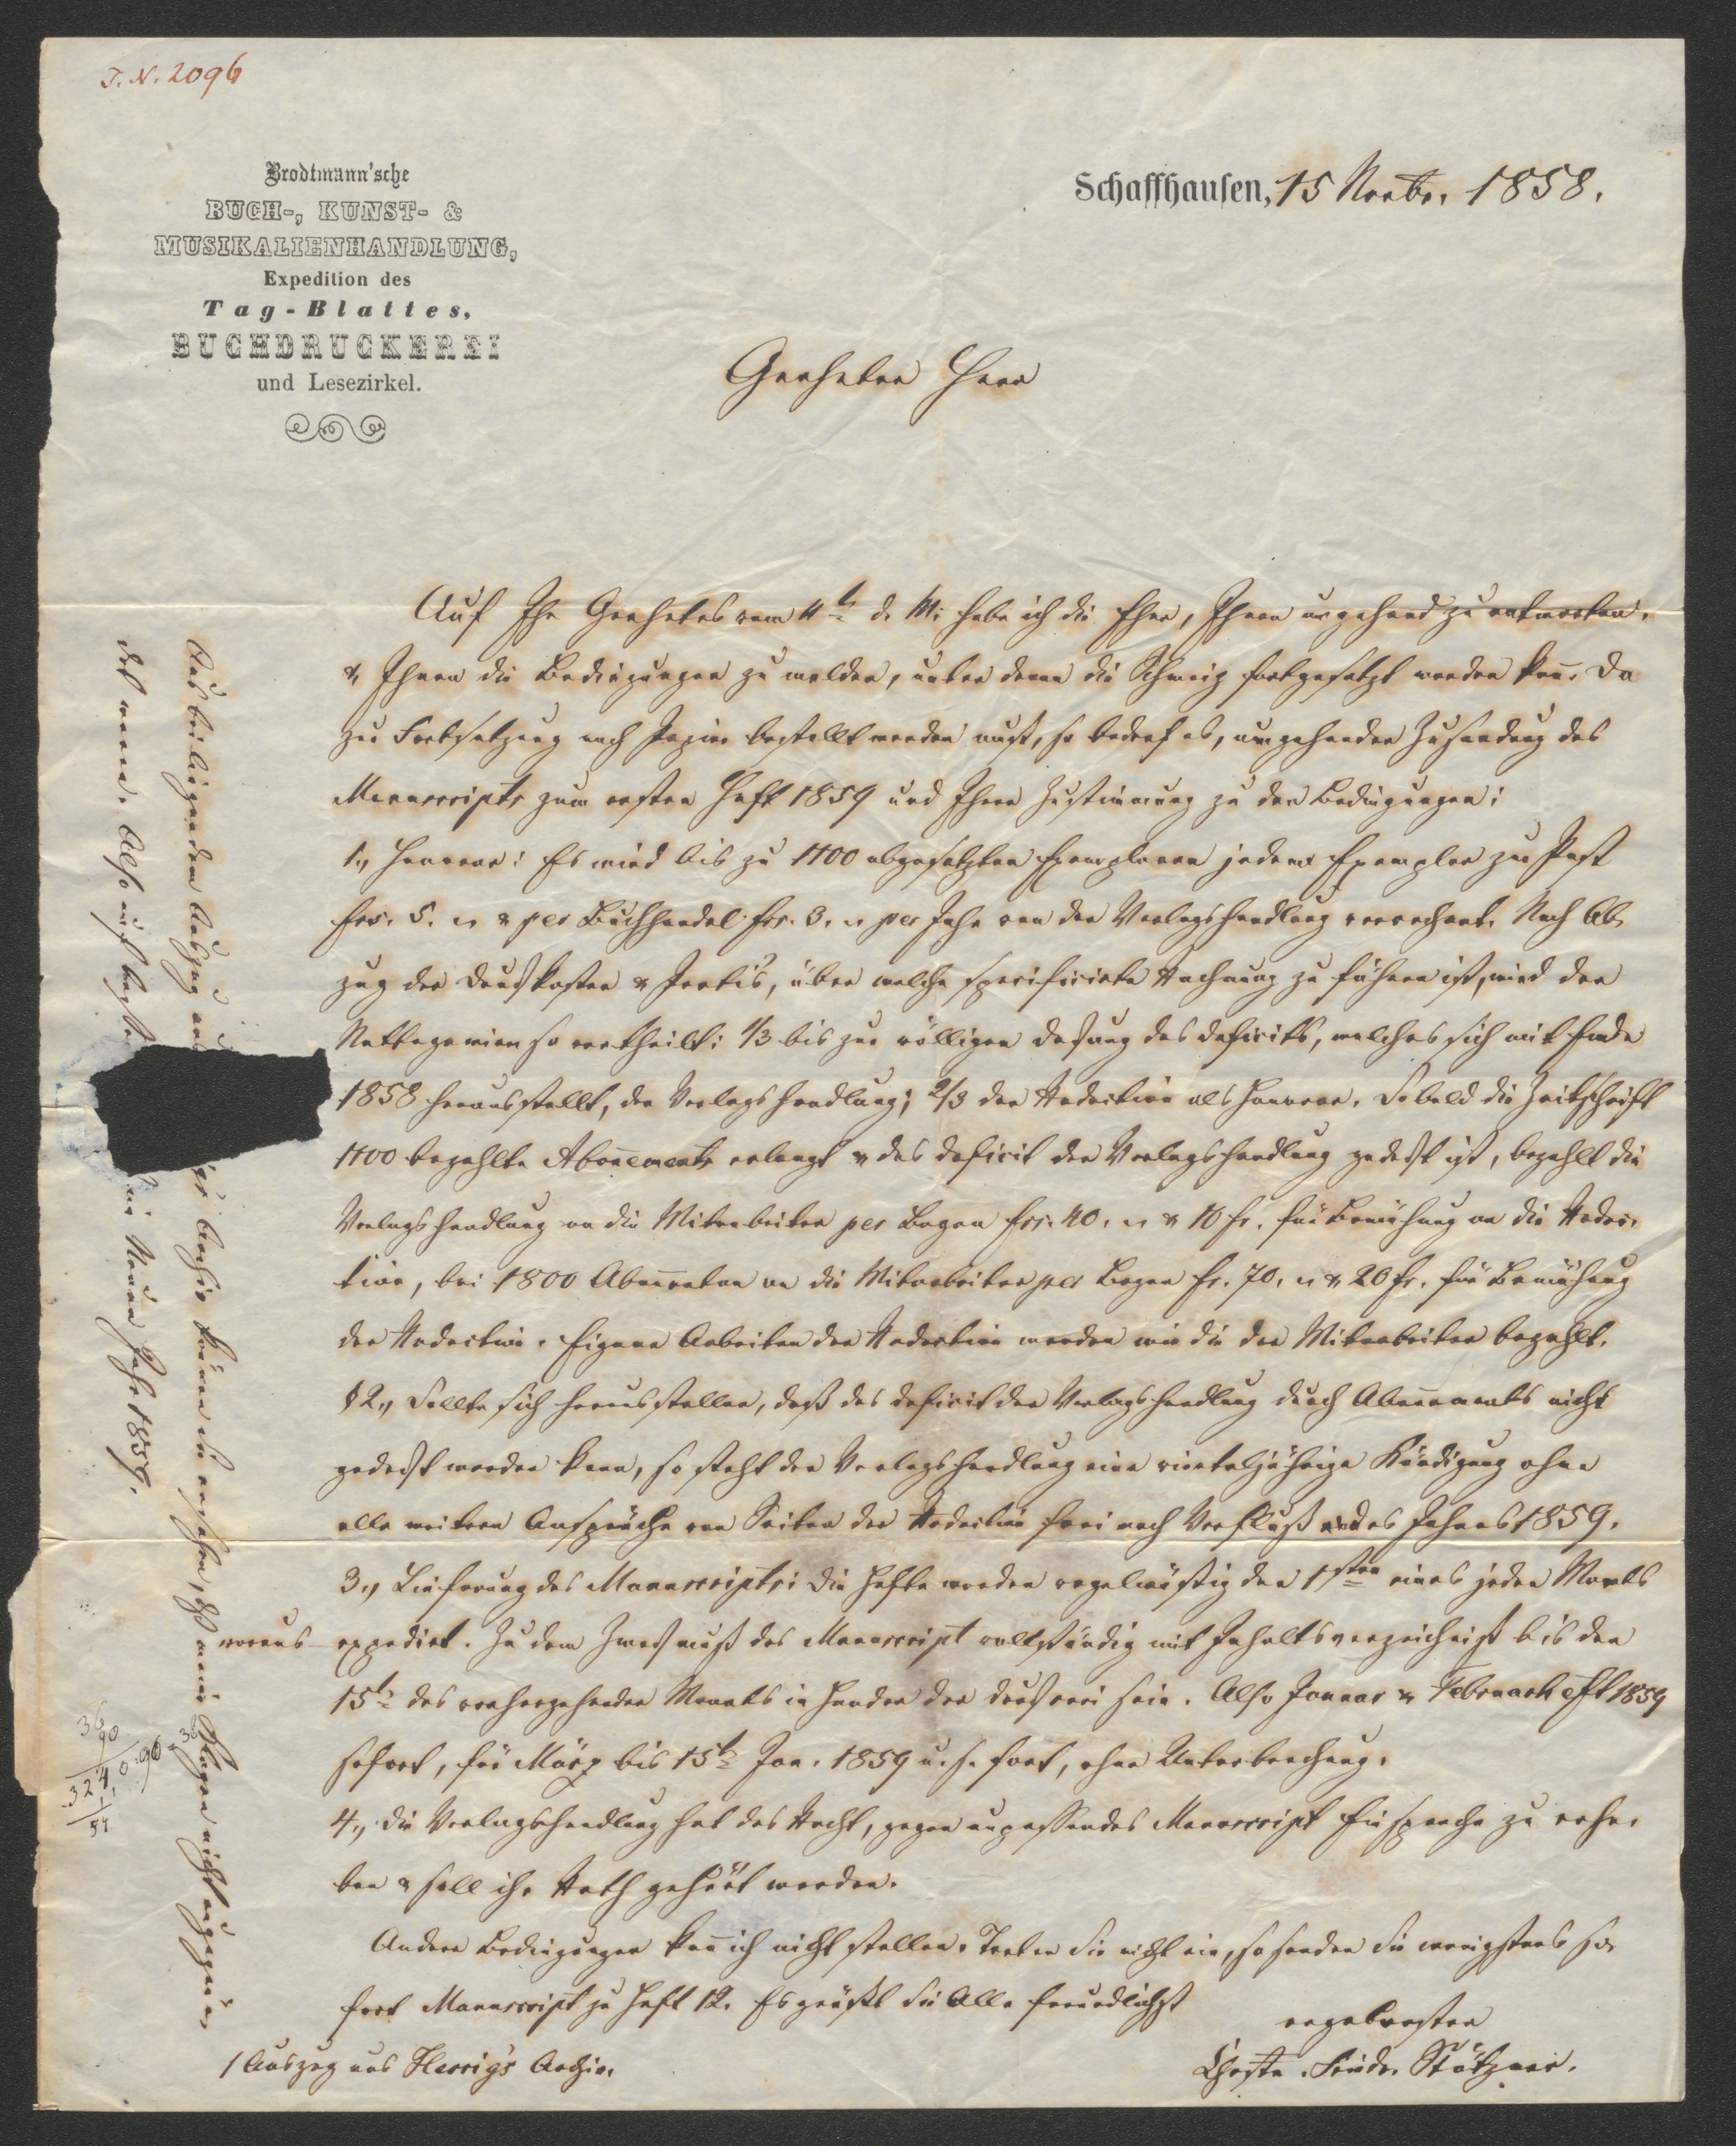 T. N. 2096
Brodtmann'sche
BUCH-, KUNST- &
MUSIKALIENHANDLUNG,
Expedition des
Tag-Blattes,
BUCHDRUCKEREI
und Lesezirkel.
Schaffhausen, 15 Novbr. 1858.
Geehrter Herr
Auf Ihr Geehrtes vom 4t d. M. habe ich die Ehre, Ihnen umgehend zu antworten,
& Ihnen die Bedingungen zu melden, unter denen die Schweiz fortgesetzt werden kan̄. Da
zur Fortsetzung noch Papier bestellt werden muß, so bedarf es, umgehender Zusendung des
Manuscripts zum ersten Heft 1859 und Ihrer Zustimmung zu den Bedingungen:
1., Honorar: Es wird bis zu 1100 abgesetzten Exemplaren jedem Exemplar zur Post
frs. 5. „ & per Buchhandel frs. 3. „ per Jahr von der Verlagshandlung verrechnet. Nach Ab-
zug der Druckkosten & Porti's, über welche specificirte Rechnung zu führen ist, wird der
Nettogewinn so vertheilt: 1/3 bis zur völligen Deckung des Deficits, welches sich mit Ende
1858 herausstellt, der Verlagshandlung; 2/3 der Redaction als Honorar. Sobald die Zeitschrift
1100 bezahlte Abon̄ements erlangt & das Deficit der Verlagshandlung gedeckt ist, bezahlt die
Verlagshandlung an die Mitarbeiter per Bogen frs. 40. „ & 10 fr. für Bemühung an die Redac-
tion, bei 1800 Abon̄enten an die Mitarbeiter per Bogen fr. 70. „ & 20 fr. für Bemühung
der Redaction. Eigene Arbeiten der Redaction werden wie die der Mitarbeiter bezahlt.
2., Sollte sich herausstellen, daß das Deficit der Verlagshandlung durch Abon̄ements nicht
gedeckt werden kann, so steht der Verlagshandlung eine vierteljährige Kündigung ohne
alle weitern Ansprüche von Seiten der Redaction frei nach Verfluß des Jahres 1859.
3., Lieferung des Manuscripts: Die Hefte werden regelmäßig den 1sten eines jeden Monats
voraus expedirt. Zu dem Zweck muß das Manuscript vollständig mit Inhaltsverzeichniß bis den
15t des vorhergehenden Monats in Handen der Druckerei sein. Also Januar & Februarheft 1859
sofort, für März bis 15t Jan. 1859 u. s. fort, ohne Unterbrechung.
4., Die Verlagshandlung hat das Recht, gegen unpassendes Manuscript Einsprache zu erhe-
ben & soll ihr Rath gehört werden.
Andere Bedingungen kan̄ ich nicht stellen. Treten Sie nicht ein, so senden Sie wenigstens so-
fort Manuscript zu Heft 12. Es grüßt Sie Alle freundlichst
ergebenster
Christn. Friedr. Stötzner.
1 Auszug aus Herrig's Archiv.
Aus beiliegendem Auszug aus
Archiv können Sie ersehen, daß meine Klagen nicht ungegrün-
det waren. Also auf
im Neuen Jahr 1859.
36
90
3240 : 90 = 36
54